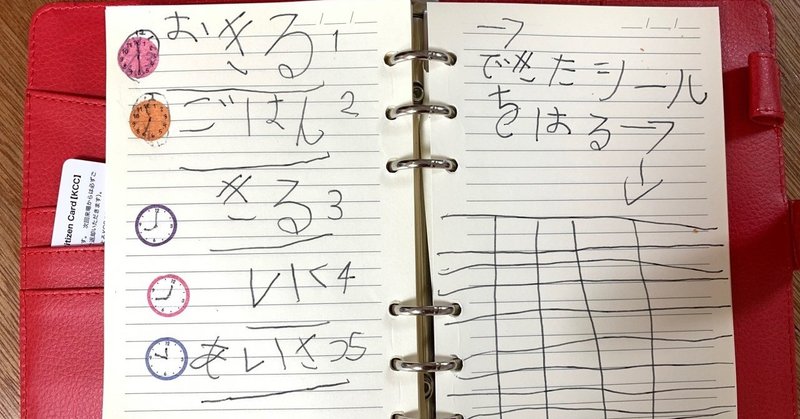 おきる1
ごはん2
きる3
いく4
あいさつ5
→
できたシール
をはる→
↓
Citizen Card【KCC】